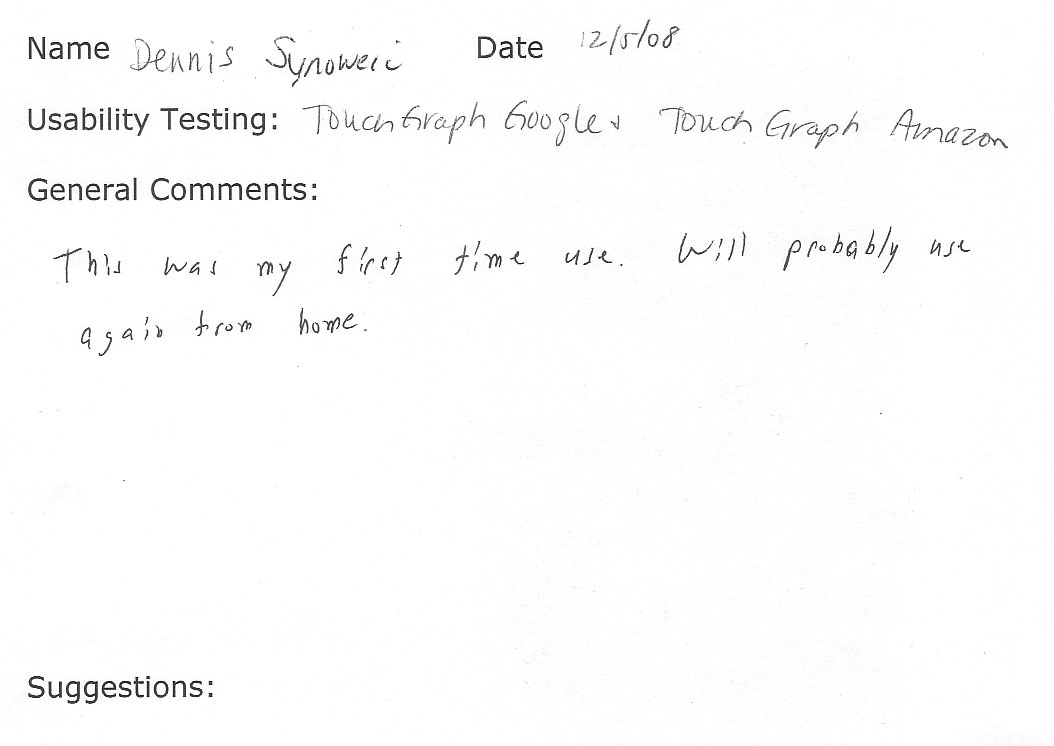 Name Dennis Synoweic Date 12/5/08
Usability Testing: TouchGraph Google & Touch Graph Amazon
General Comments:
This was my first time use. Will probably use
again from home.
Suggestions: